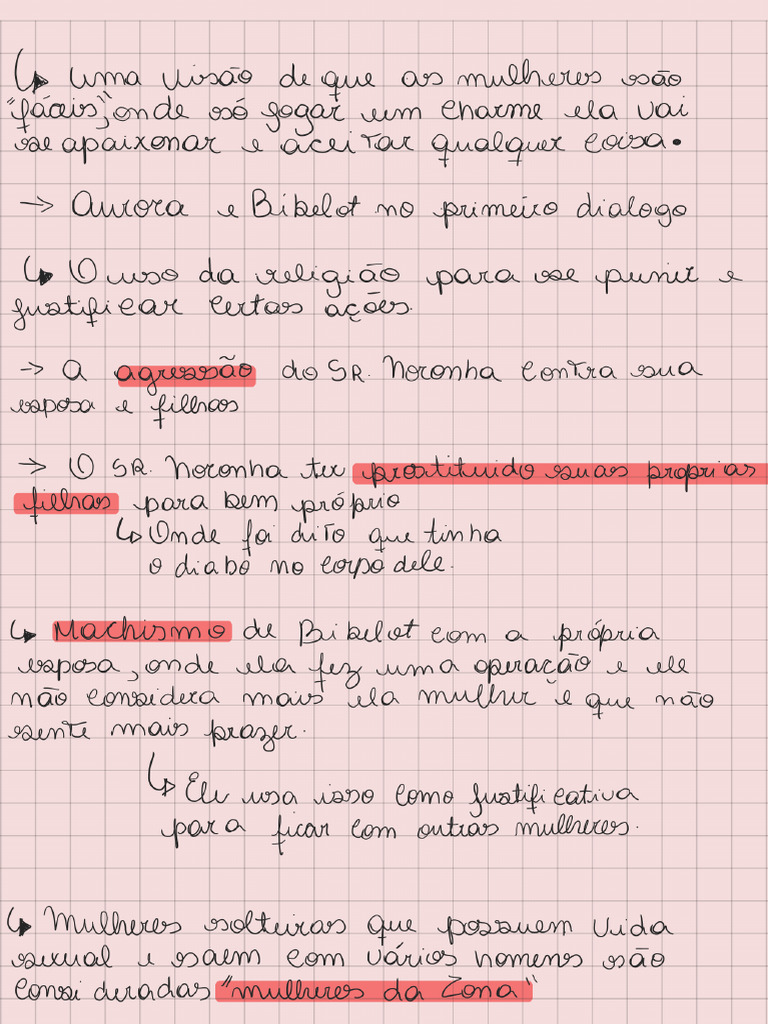 ↳ uma visão de que as mulheres são
"fáceis", onde só jogar um charme ela vai
se apaixonar e aceitar qualquer coisa.
→ Aurora e Bibelot no primeiro dialogo
↳ O uso da religião para se punir e
justificar certas ações.
→ A agressão do SR. Noronha contra sua
esposa e filhas
→ O SR. Noronha ter prostituido suas proprias
filhas para bem próprio
↳ Onde foi dito que tinha
o diabo no corpo dele.
↳ Machismo de Bibelot com a própria
esposa, onde ela fez uma operação e ele
não considera mais ela mulher e que não
sente mais prazer.
↳ Ele usa isso como justificativa
para ficar com outras mulheres.
↳ Mulheres solteiras que possuem vida
sexual e saem com vários homens são
consideradas "mulheres da Zona"